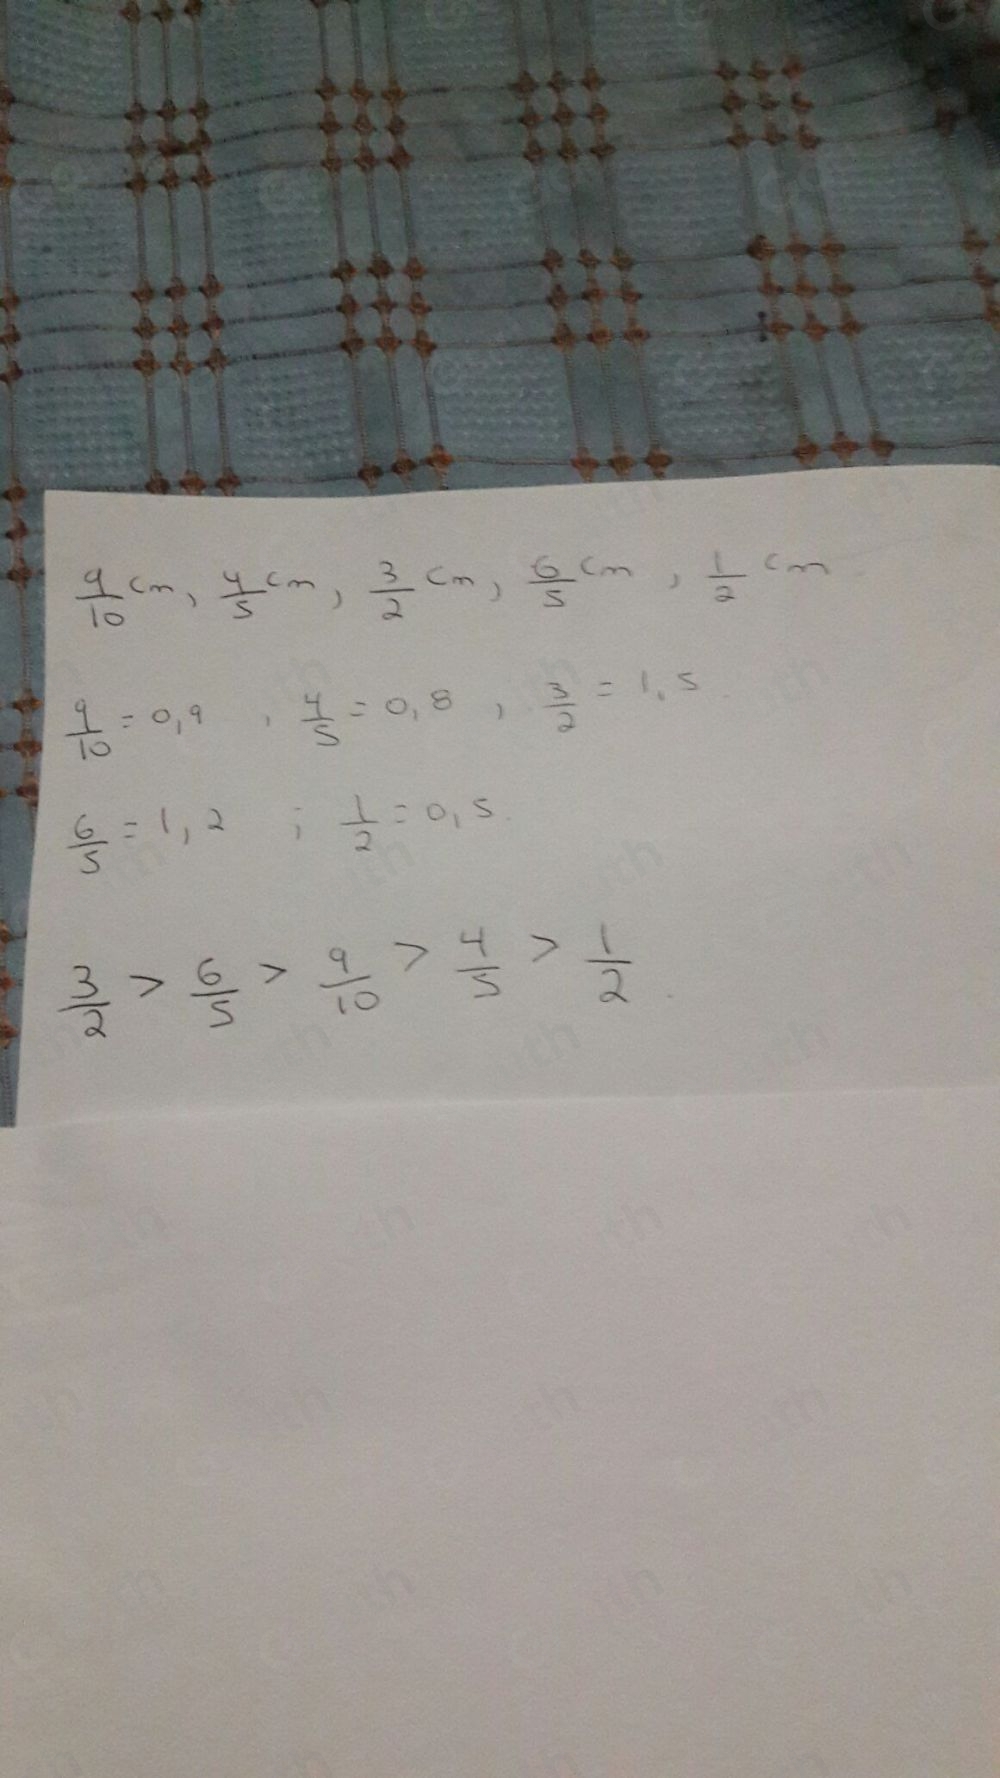 9/10 cm, 4/5 cm, 3/2 cm, 6/5 cm, 1/2 cm
9/10 = 0,9 , 4/5 = 0,8 , 3/2 = 1,5
6/5 = 1,2 ; 1/2 = 0,5.
3/2 > 6/5 > 9/10 > 4/5 > 1/2.